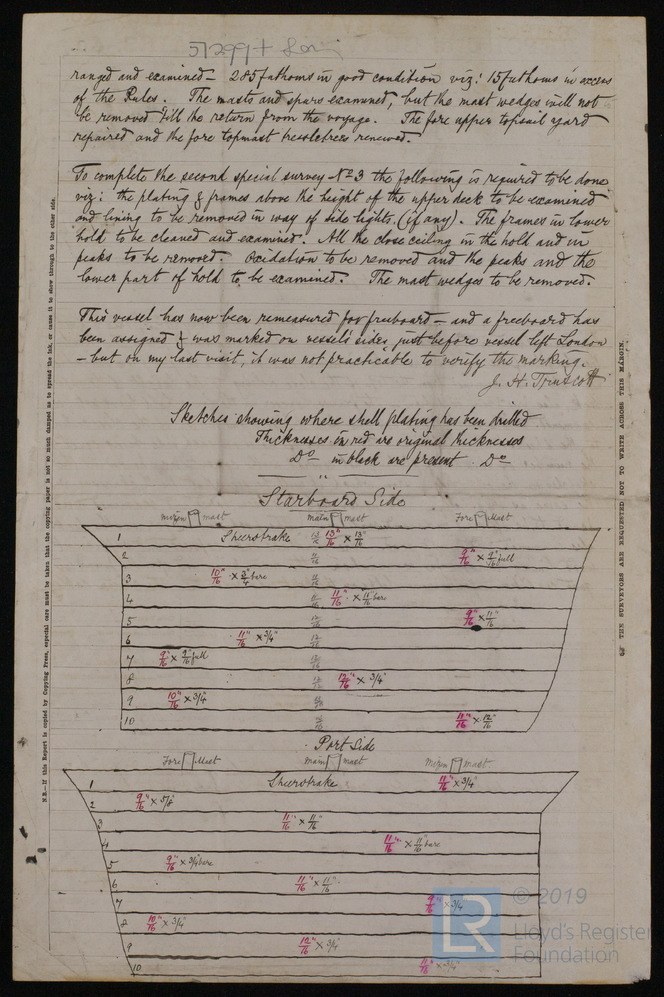 51299+ Lon
ranged and examined – 285 fathoms in good condition viz: 15 fathoms in excess
of the Rules. The masts and spars examined, but the mast wedges will not
be removed till the return from the voyage. The fore upper topsail yard
repaired and the fore topmast trestletrees renewed.
To complete the second special survey No 3 the following is required to be done
viz: the plating & frames above the height of the upper deck to be examined
and lining to be removed in way of side lights, (if any). The frames in lower
hold to be cleaned and examined. All the close ceiling in the hold and in
peaks to be removed. Oxidation to be removed and the peaks and the
lower part of hold to be examined. The mast wedges to be removed.
This vessel has now been remeasured for freeboard – and a freeboard has
been assigned & was marked on vessel's sides just before vessel left London
– but on my last visit, it was not practicable to verify the marking.
J. H. Truscott
Sketches showing where shell plating has been drilled
Thicknesses in red are original thicknesses
Do in black are present Do
Starboard Side
mizen mast main mast Fore Mast
1 Sheerstrake 13/16" × 13/16"
2 9/16" × 9/16" full
3 10/16" × 3/4" bare
4 11/16" × 11/16" bare
5 9/16" × 11/16"
6 11/16" × 3/4"
7 9/16" × 9/16" full
8 12/16" × 3/4"
9 10/16" × 3/4"
10 11/16" × 12/16"
Port Side
Fore Mast main mast mizen mast
1 Sheerstrake 11/16" × 3/4"
2 9/16" × 5/8"
3 11/16" × 11/16"
4 11/16" × 11/16" bare
5 9/16" × 3/4" bare
6 11/16" × 11/16"
7 9/16" × 3/4
8 10/16" × 3/4"
9 12/16" × 3/4"
10 × 3/4"
N.B.—If this Report is copied by Copying Press, especial care must be taken that the copying paper is not so much damped as to spread the ink, or cause it to show through to the other side.
THE SURVEYORS ARE REQUESTED NOT TO WRITE ACROSS THIS MARGIN.
LR
© 2019
Lloyd's Register
Foundation